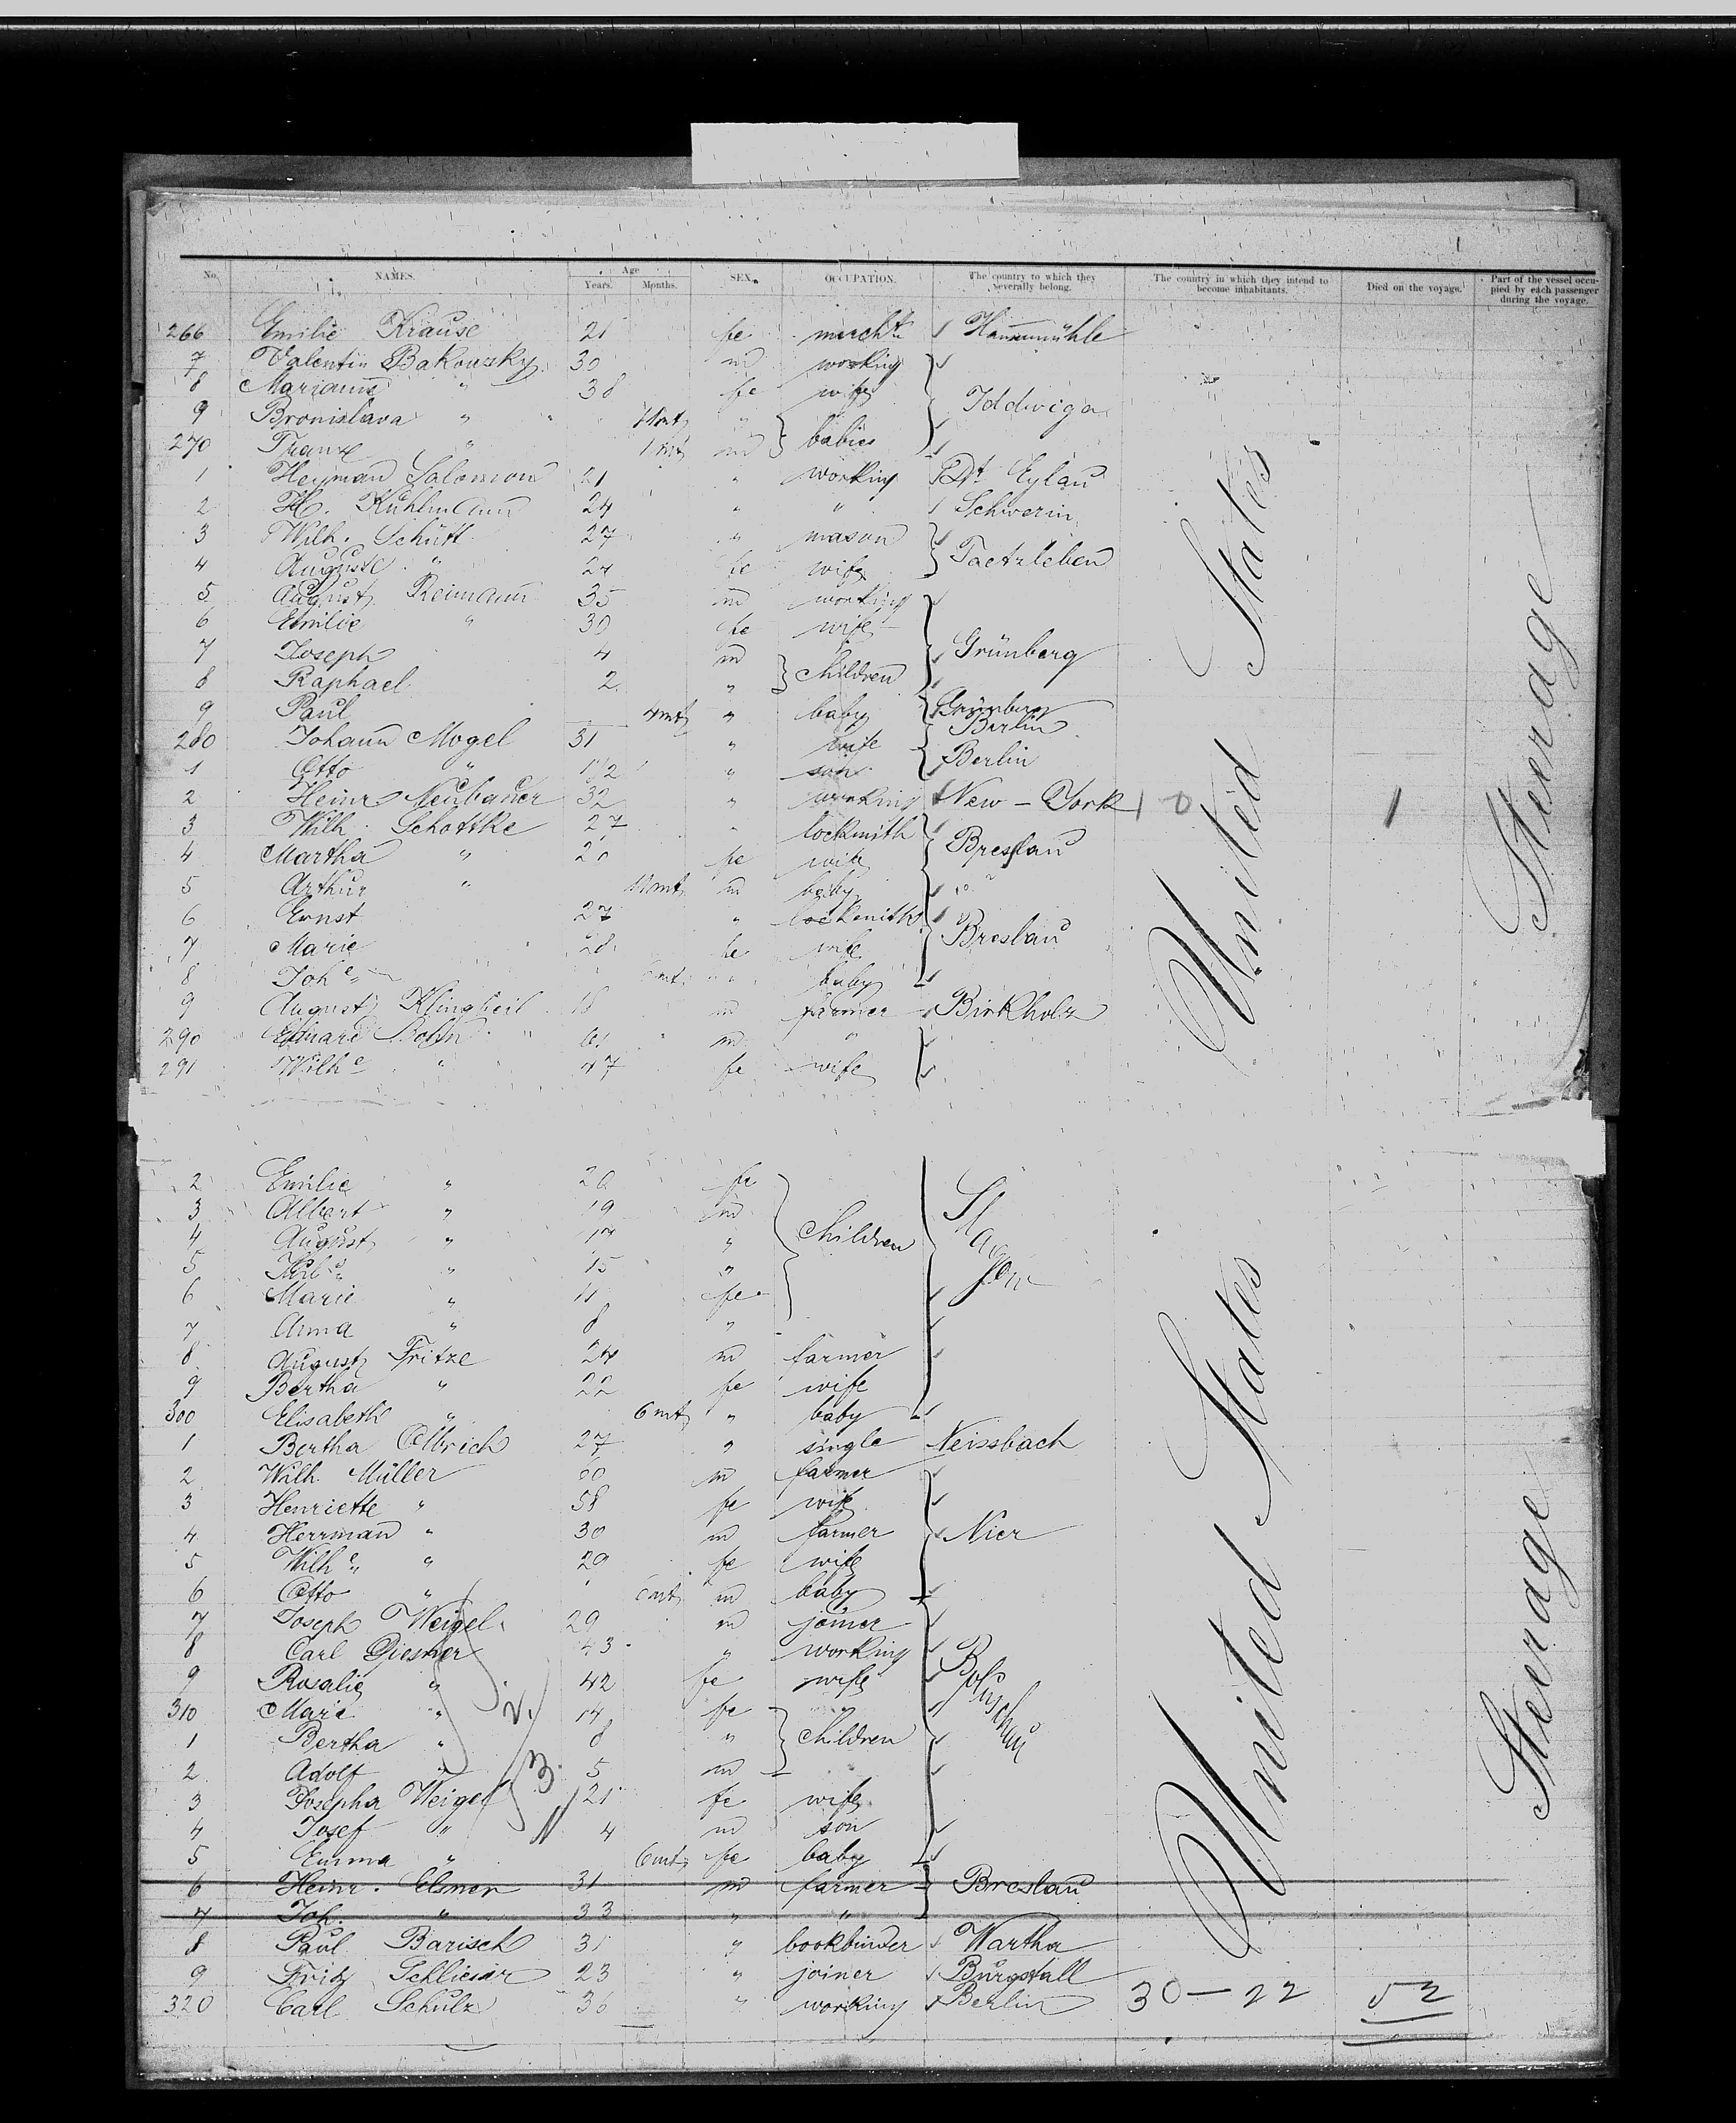 No. NAMES. Age Years. Months. SEX. OCCUPATION. The country to which they severally belong. The country in which they intend to become inhabitants. Died on the voyage. Part of the vessel occupied by each passenger during the voyage.
266 Emilie Krause 21 fe Hammmühle
7 Valentin 30 m working
8 Marianne " 38 fe wife Iddwiga
9 Bronislava " "
270 Franz " m babies
1 Heyman Salomon 21 " working Dt. Eylau
2 H. Kuhlmann 24 " " Schwerin
3 Wilh. Schütt 27 " mason
4 Auguste " fe wife
5 August Reimann 35 m working
6 Emilie " 30 fe wife
7 Joseph 4 m children Grünberg
8 Raphael 2 "
9 Paul 4 mt " baby Grünberg
280 Johann Mogel 31 " wife Berlin
1 Otto " " son Berlin
2 Heinr. Neubauer 32 " working New-York 1 0 1
3 Wilh. Schottke 27 " lockmith
4 Martha " fe wife Breslau
5 Arthur " m baby
6 Ernst 27 "
7 Marie 28 fe wife Breslau
8 Joh e " baby
9 August Klingbeil 18 m farmer Birkholz
290 Eduard " m "
291 Wilh e " 47 fe wife
United States
Steerage
2 Emilie " 20 fe
3 Albert " 19 m
4 August " 17 " children
5 " 15 "
6 Marie " 11 fe
7 Anna " 8 "
8 August Fritze 24 m farmer
9 Bertha " 22 fe wife
300 Elisabeth " 6 mt " baby
1 Bertha Olbrich 27 " single Neissbach
2 Wilh. Müller 60 m farmer
3 Henriette " 58 fe wife
4 Herrman " 30 m farmer Nier
5 Wilh e " 29 fe wife
6 Otto " 6 mt m baby
7 Joseph Weigel 29 m joiner
8 Carl Giesmer 43 " working
9 Rosalie " 42 fe wife
310 Marie " 14 fe
1 Bertha " 8 " children
2 Adolf " 5 m
3 Josepha Weigel 21 fe wife
4 Josef " 4 m son
5 Emma " 6 mt fe baby
6 Heinr. Elsner 31 m farmer Breslau
7 Joh. " 33 " "
8 Paul Barisch 31 " bookbinder Wartha
9 Fritz 23 " joiner Burgstall
320 Carl Schulz 36 " working Berlin 30-22 52
United States
Steerage